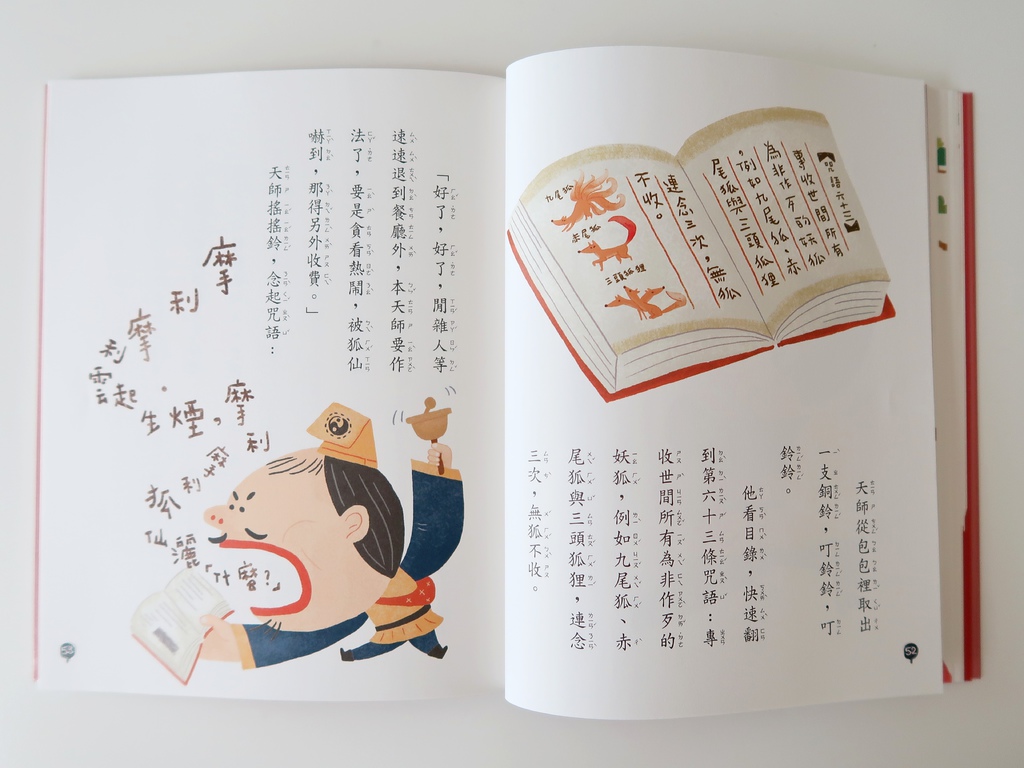 【咒語六十三】
專收世間所有
為非作歹的妖狐
,例如九尾狐、赤
尾狐與三頭狐狸
連念三次,無狐
不收。
九尾狐
赤尾狐
三頭狐狸
天師從包包裡取出
一支銅鈴,叮鈴鈴,叮
鈴鈴。
他看目錄,快速翻
到第六十三條咒語:專
收世間所有為非作歹的
妖狐,例如九尾狐、赤
尾狐與三頭狐狸,連念
三次,無狐不收。
52
「好了,好了,閒雜人等
速速退到餐廳外,本天師要作
法了,要是貪看熱鬧,被狐仙
嚇到,那得另外收費。」
天師搖搖鈴,念起咒語:
摩利摩利
雲起生煙,
摩利摩利
狐仙灑「什麼?」
53